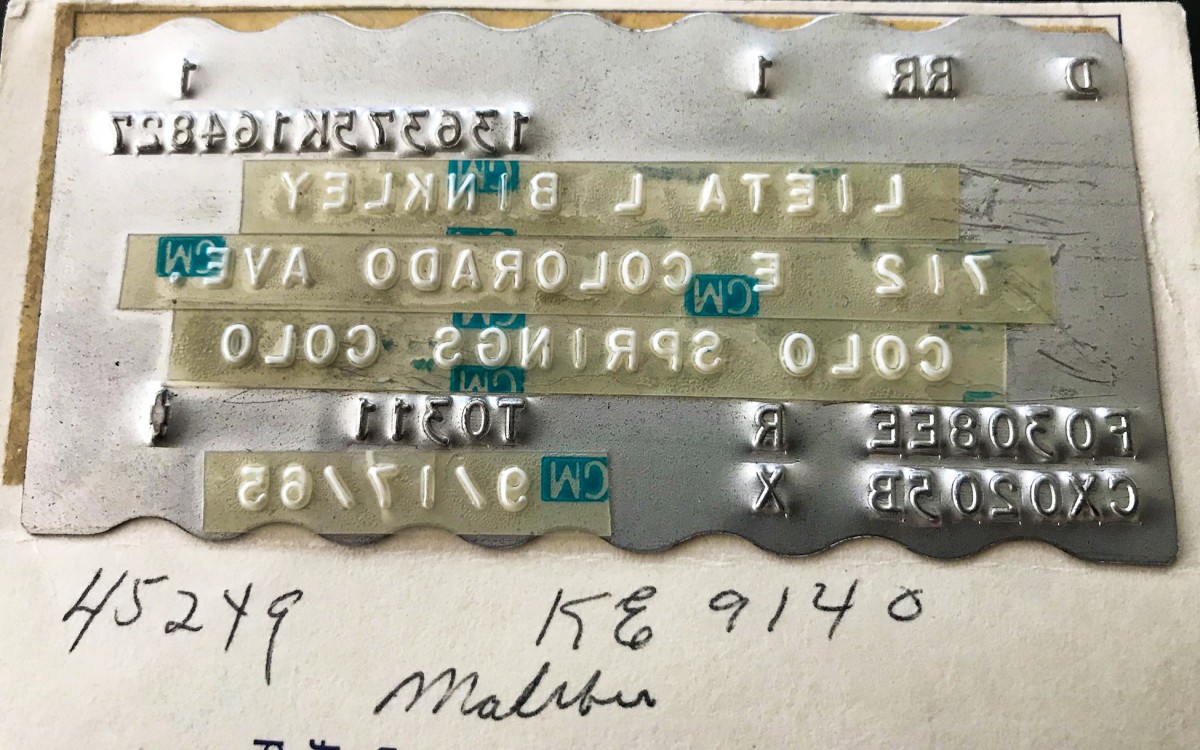 D RR 1 1
136375K164827
LIETA L BINKLEY
712 E COLORADO AVE.
COLO SPRINGS COLO
F0308EE R T0311
CX0205B X 9/17/65
GM
45249 KE 9140
Malibu